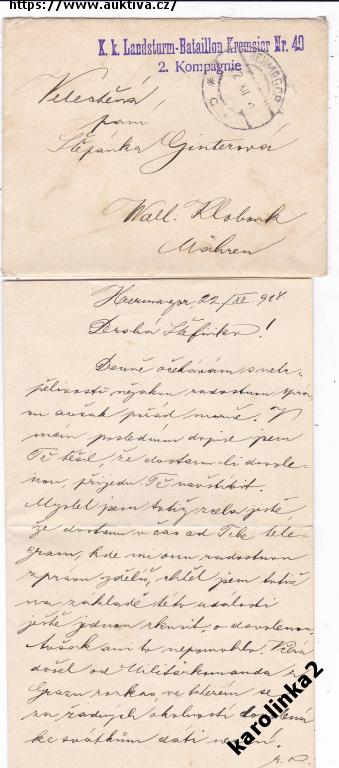 https://www.auktiva.cz/
K. k. Landsturm-Bataillon Kremsier Nr. 40
2. Kompagnie
Velectěná
paní
Štěpánka Ginterová
Wall. Klobouk
Mähren
Hermagor, 22/XI. 914.
Drahá Štefinko!
Denně očekávám s netr-
pělivostí nějakou radostnou zprá-
vu avšak pořád marně. V
mém posledním dopise jsem
Tě těšil, že dostanu-li dovole-
nou, přijedu Tě navštívit.
Myslel jsem totiž zcela jistě
že dostanu v čas od Tebe tele-
gram, kde mi onu radostnou
zprávu sdělíš, chtěl jsem totiž
na základě této události
ještě jednou zkusit o dovolenou,
Avšak ani to nepomohlo. Včera
došel od Militärkomanda z
Grazu rozkaz, ve kterém se
za žádných okolností dovolená
ke svátkům dáti nesmí.
karolinka2